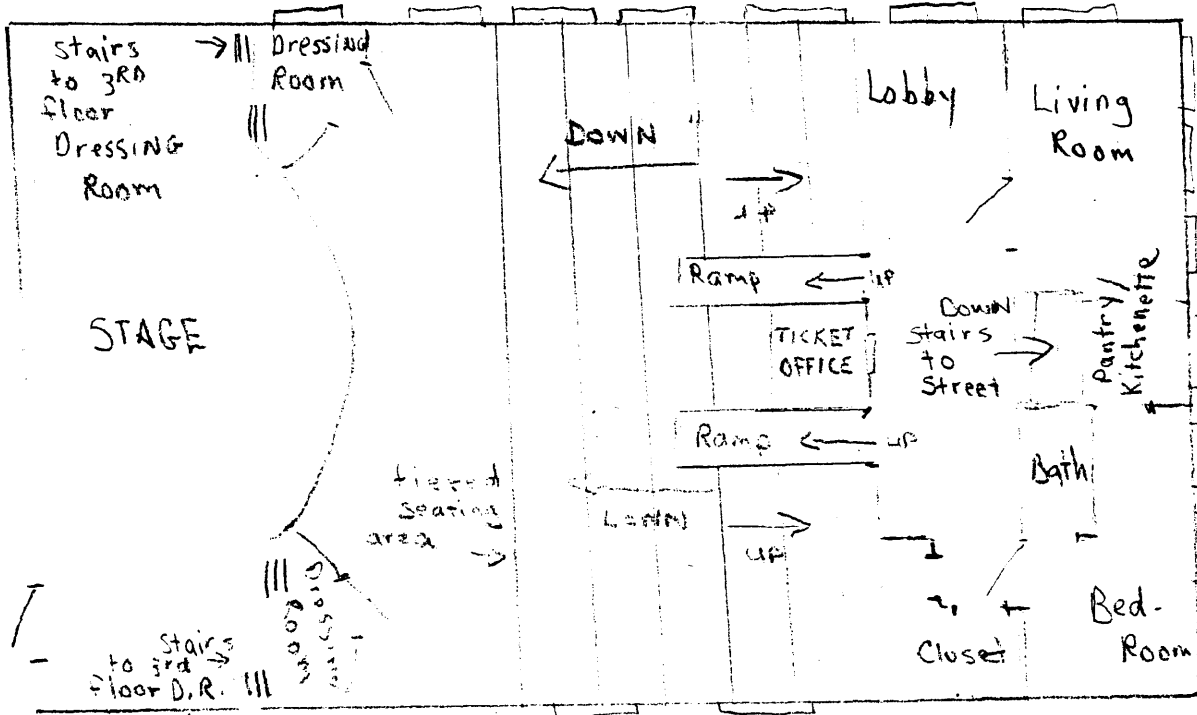 Stairs
to 3RD
floor
DRESSING
ROOM
Dressing
Room
DOWN
UP
Lobby
Living
Room
Ramp
UP
STAGE
TICKET
OFFICE
DOWN
Stairs
to
Street
Pantry/
Kitchenette
Ramp
UP
tiered
seating
area
UP
Bath
Dressing
Room
Stairs
to 3rd
floor D.R.
Closet
Bed-
Room